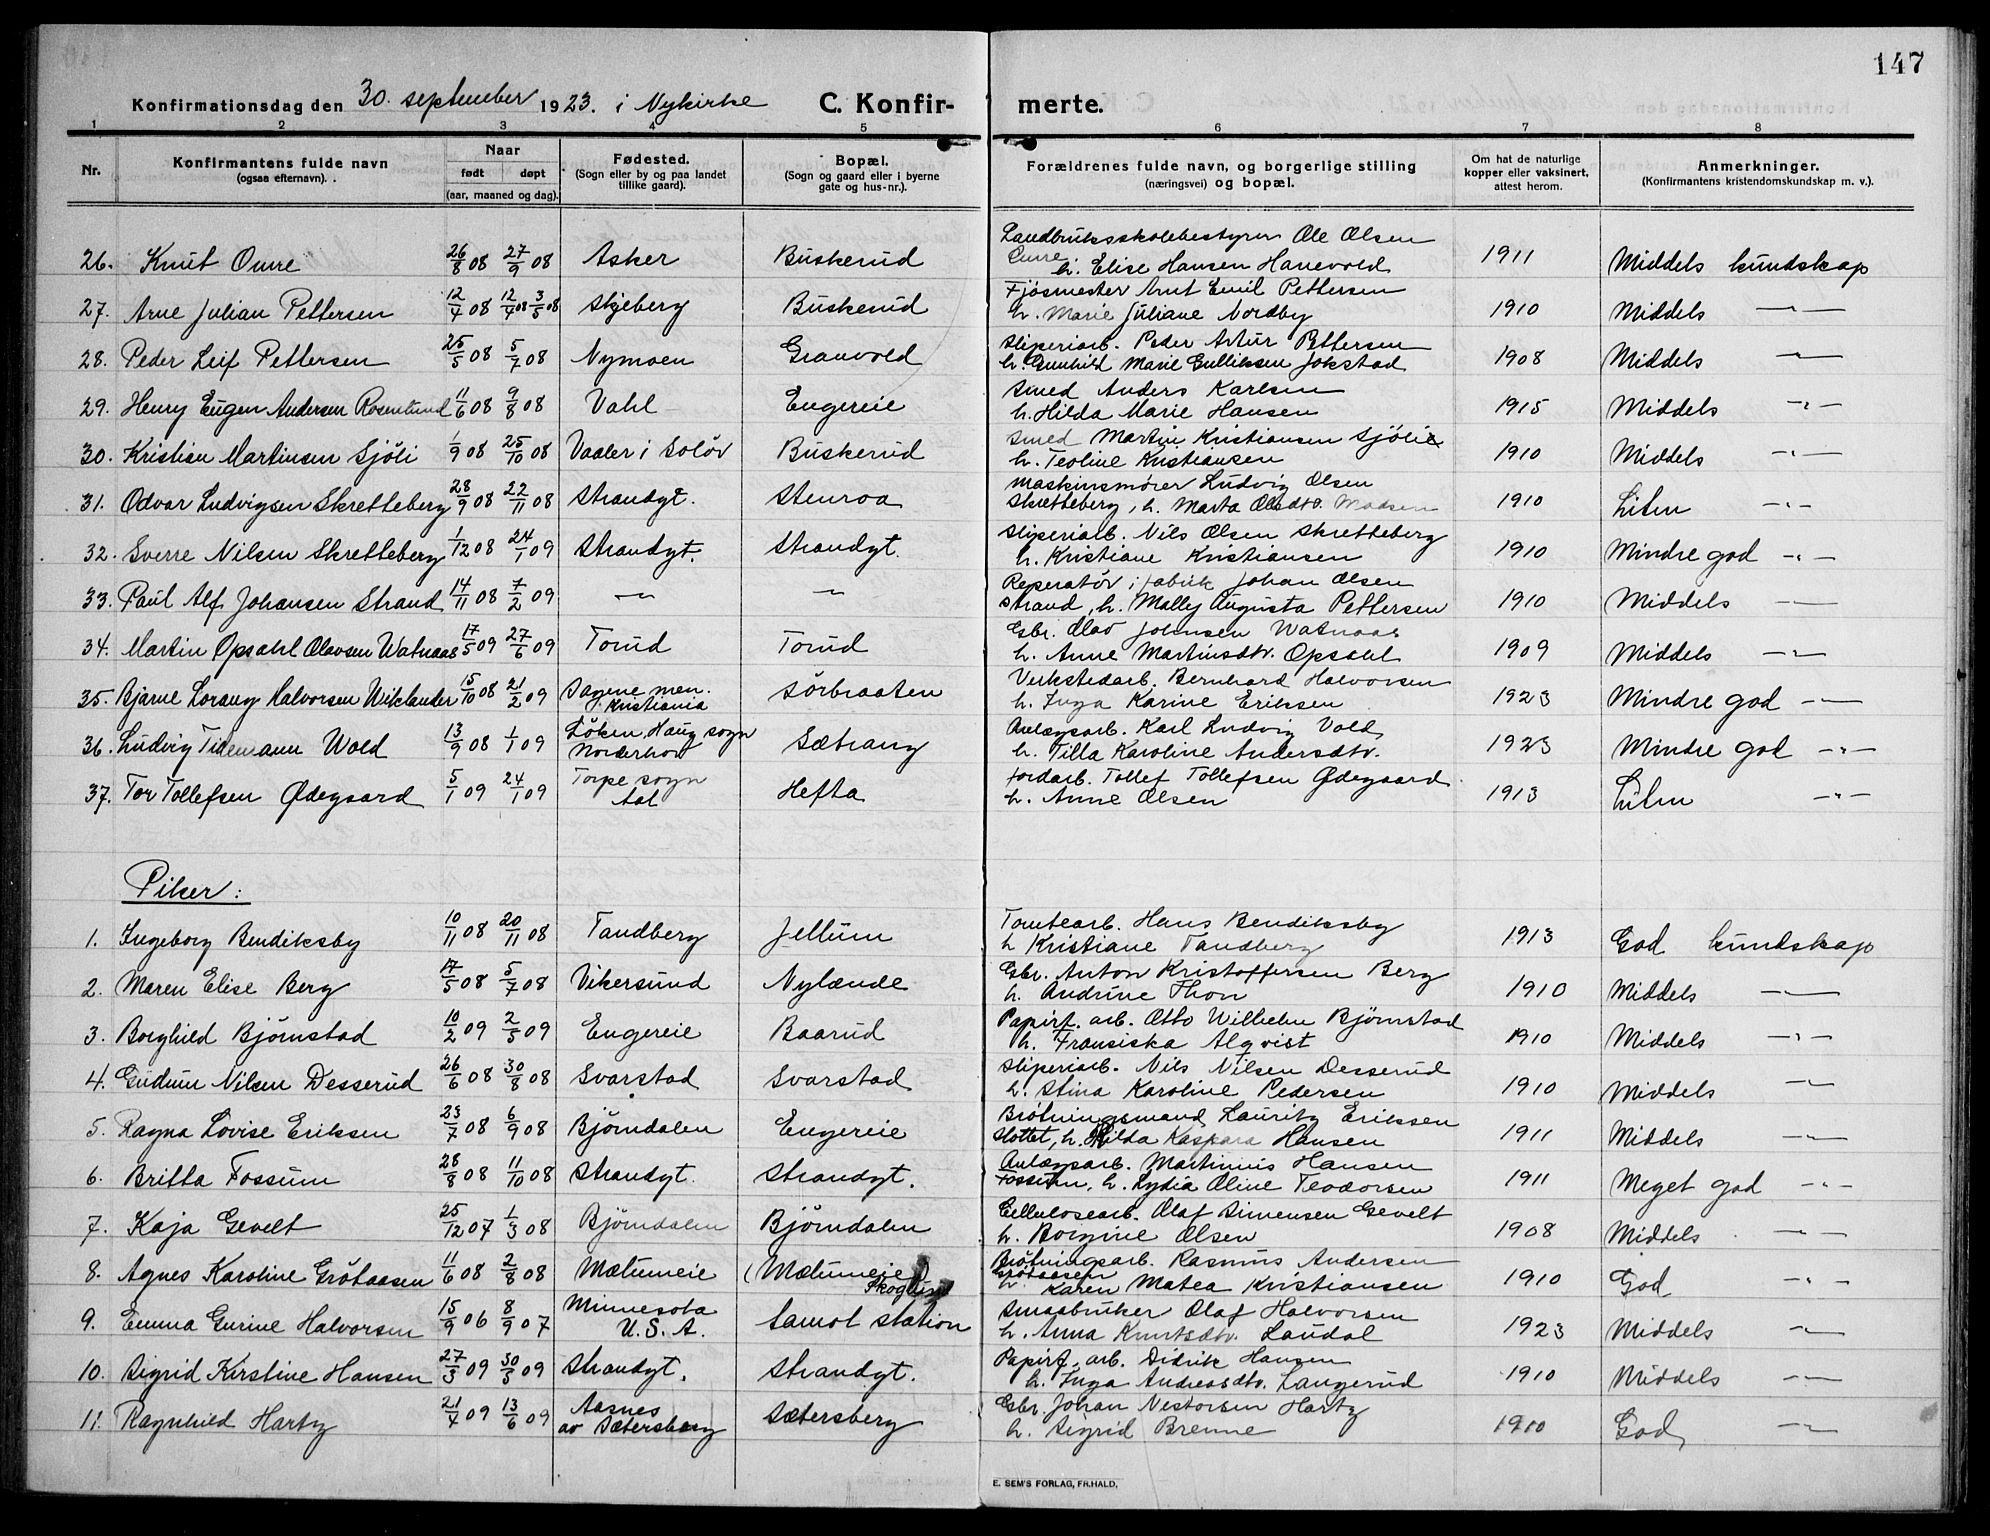 147
Konfirmationsdag den 30. september 1923. i Nykirke C. Konfir- merte.
1 2 3 4 5 6 7 8
Nr. Konfirmantens fulde navn (ogsaa efternavn). Naar født døpt (aar, maaned og dag). Fødested. (Sogn eller by og paa landet tillike gaard). Bopæl. (Sogn og gaard eller i byerne gate og hus-nr.). Forældrenes fulde navn, og borgerlige stilling (næringsvei) og bopæl. Om hat de naturlige kopper eller vaksinert, attest herom. Anmerkninger. (Konfirmantens kristendomskundskap m. v.).
Landbruksskolebestyrer Ole Olsen
26. Knut Omre 26/8 08 27/9 08 Asker Buskerud Omre h. Elise Hansen Hanevold 1911 Middels kundskap
Fjösmester Arnt Emil Pettersen
27. Arne Julian Pettersen 12/4 08 12/4 08 3/5 08 Skjeberg Buskerud h. Marie Juliane Nordby 1910 Middels -"-
Sliperiarb. Peder Artur Pettersen
28. Peder Leif Pettersen 25/5 08 5/7 08 Nymoen Granvold h. Gunhild Marie Gulliksen Jokstad 1908 Middels -"-
Smed Anders Karlsen
29. Henry Eugen Andersen Rosenlund 11/6 08 9/8 08 Vahl Engereie h. Hilda Marie Hansen 1915 Middels -"-
Smed Martin Kristiansen Sjölie
30. Kristian Martinsen Sjöli 1/9 08 25/10 08 Vaaler i Solör Buskerud h. Teoline Kristiansen 1910 Middels -"-
Maskinsmörer Ludvig Olsen
31. Odvar Ludvigsen Skretteberg 28/9 08 22/11 08 Strandgt. Stenroa Skretteberg, h. Marta Olsdtr. Madsen 1910 Liten -"-
Sliperiarb. Nils Olsen Skretteberg
32. Sverre Nilsen Skretteberg 1/12 08 24/1 09 Strandgt. Strandgt. h. Kristiane Kristiansen 1910 Mindre god -"-
Reperatör i fabrik Johan Olsen
33. Paul Alf Johansen Strand 14/11 08 7/2 09 -"- -"- Strand, h. Mally Augusta Pettersen 1910 Middels -"-
Gbr. Olav Johnsen Watnaas
34. Martin Opsahl Olavsen Watnaas 17/5 09 27/6 09 Torud Torud h. Anne Martinsdtr. Opsahl 1909 Middels -"-
Verkstedarb. Bernhard Halvorsen
35. Bjarne Lorang Halvorsen Wiklander 15/10 08 21/2 09 Sagene men. Kristiania Sörbraaten h. Inga Karine Eriksen 1923 Mindre god -"-
Anlægsarb. Karl Ludvig Vold
36. Ludvig Tidemann Wold 13/9 08 1/1 09 Löken, Haug sogn Norderhov Sætrang h. Tilla Karoline Andersdtr. 1923 Mindre god -"-
Jordarb. Tollef Tollefsen Ødegaard
37. Tor Tollefsen Ødegaard 5/1 09 24/1 09 Torpe sogn Aal Hefta h. Anne Olsen 1913 Liten -"-
Piker:
Tomtearb. Hans Bendiksby
1. Ingeborg Bendiksby 10/11 08 20/11 08 Tandberg Jellum h Kristiane Tandberg 1913 God kundskap
Gbr. Anton Kristoffersen Berg
2. Maren Elise Berg 17/5 08 5/7 08 Vikersund Nylænde h. Andrine Thon 1910 Middels -"-
Papirf. arb. Otto Wilhelm Björnstad
3. Borghild Björnstad 10/2 09 2/5 09 Engereie Baarud h. Fransiska Alqvist 1910 Middels -"-
Sliperiarb. Nils Nilsen Desserud
4. Gudrun Nilsen Desserud 26/6 08 30/8 08 Svarstad Svarstad h. Stina Karoline Pedersen 1910 Middels -"-
Brötningsmand Lauritz Erikssen
5. Ragna Lovise Eriksen 23/7 08 6/9 08 Björndalen Engereie Slottet, h. Hilda Kaspara Hansen 1911 Middels -"-
Anlægsarb. Martinius Hansen
6. Britta Fossum 28/8 08 11/10 08 Strandgt. Strandgt. Fossum, h. Lydia Oline Teodorsen 1911 Meget god -"-
Cellulosearb. Olaf Simensen Gevelt
7. Kaja Gevelt 25/12 07 1/3 08 Björndalen Björndalen h. Borgine Olsen 1908 Middels -"-
Brötningsarb. Rasmus Andersen
8. Agnes Karoline Grötaasen 11/6 08 2/8 08 Mælumeie (Mælumeie) Skoglund Grötaasen h. Karen Matea Kristiansen 1910 God -"-
Smaabruker Olaf Halvorsen
9. Emma Gurine Halvorsen 15/9 06 8/9 07 Minnesota U.S.A. Hamot station h. Anna Knutsdtr. Laudal 1923 Middels -"-
Papirf. arb. Didrik Hansen
10. Sigrid Kirstine Hansen 27/3 09 30/5 09 Strandgt. Strandgt. h. Inga Andreasdtr. Langerud 1910 Middels -"-
Gbr. Johan Nestorsen Hartz
11. Ragnhild Hartz 21/4 09 13/6 09 Aasnes av Sætersberg Sætersberg h. Sigrid Brenne 1910 God -"-
E. SEM'S FORLAG, FR.HALD.